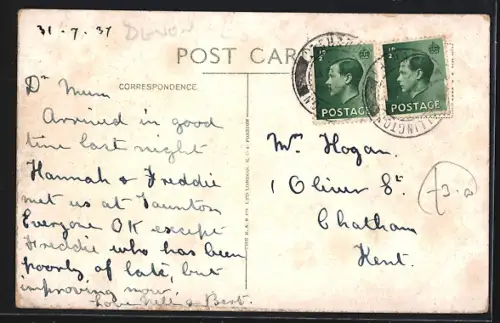 31-7-37 DEVON
POST CARD
CORRESPONDENCE.
Dr Mum
Arrived in good
time last night
Hannah & Freddie
met us at Taunton
Everyone OK except
Freddie who has been
poorly of late, but
improving now.
Love Nell & Bert.
POSTAGE
POSTAGE
LINGTON
Mrs Hogan.
1 Oliver St.
Chatham
Kent.